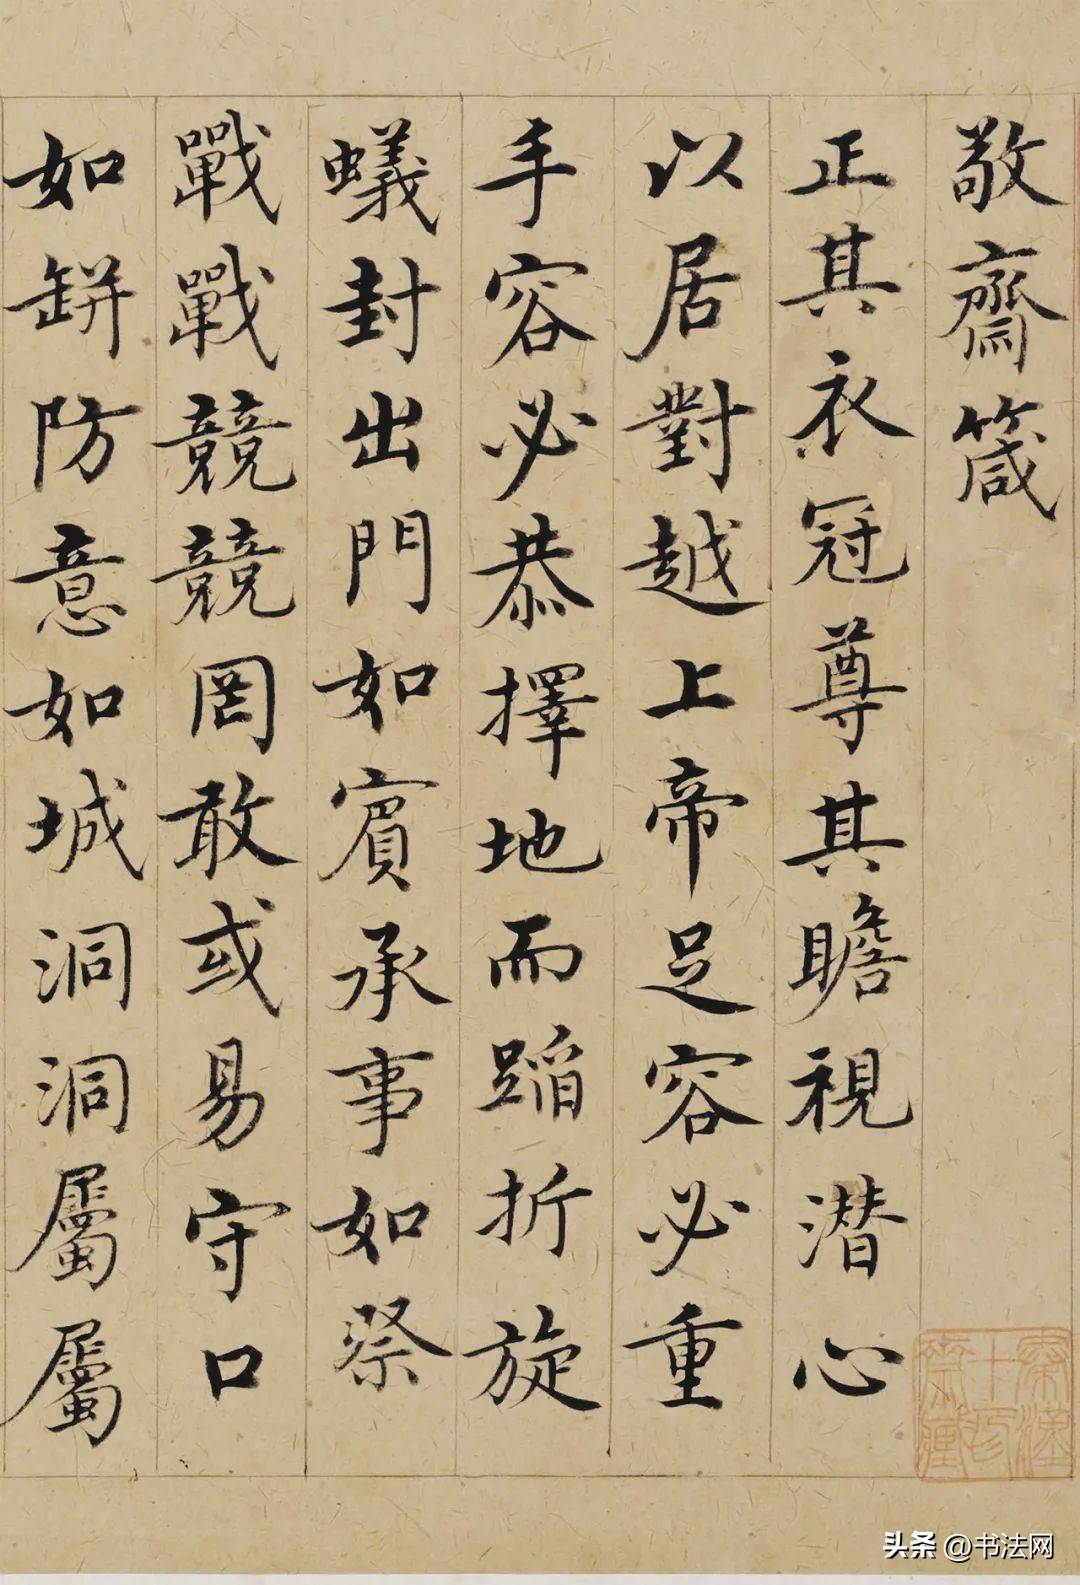 敬齋箴
正其衣冠尊其瞻視潜心
以居對越上帝足容必重
手容必恭擇地而蹈折旋
蟻封出門如賓承事如祭
戰戰競競罔敢或易守口
如缾防意如城洞洞屬屬
头条 @书法网